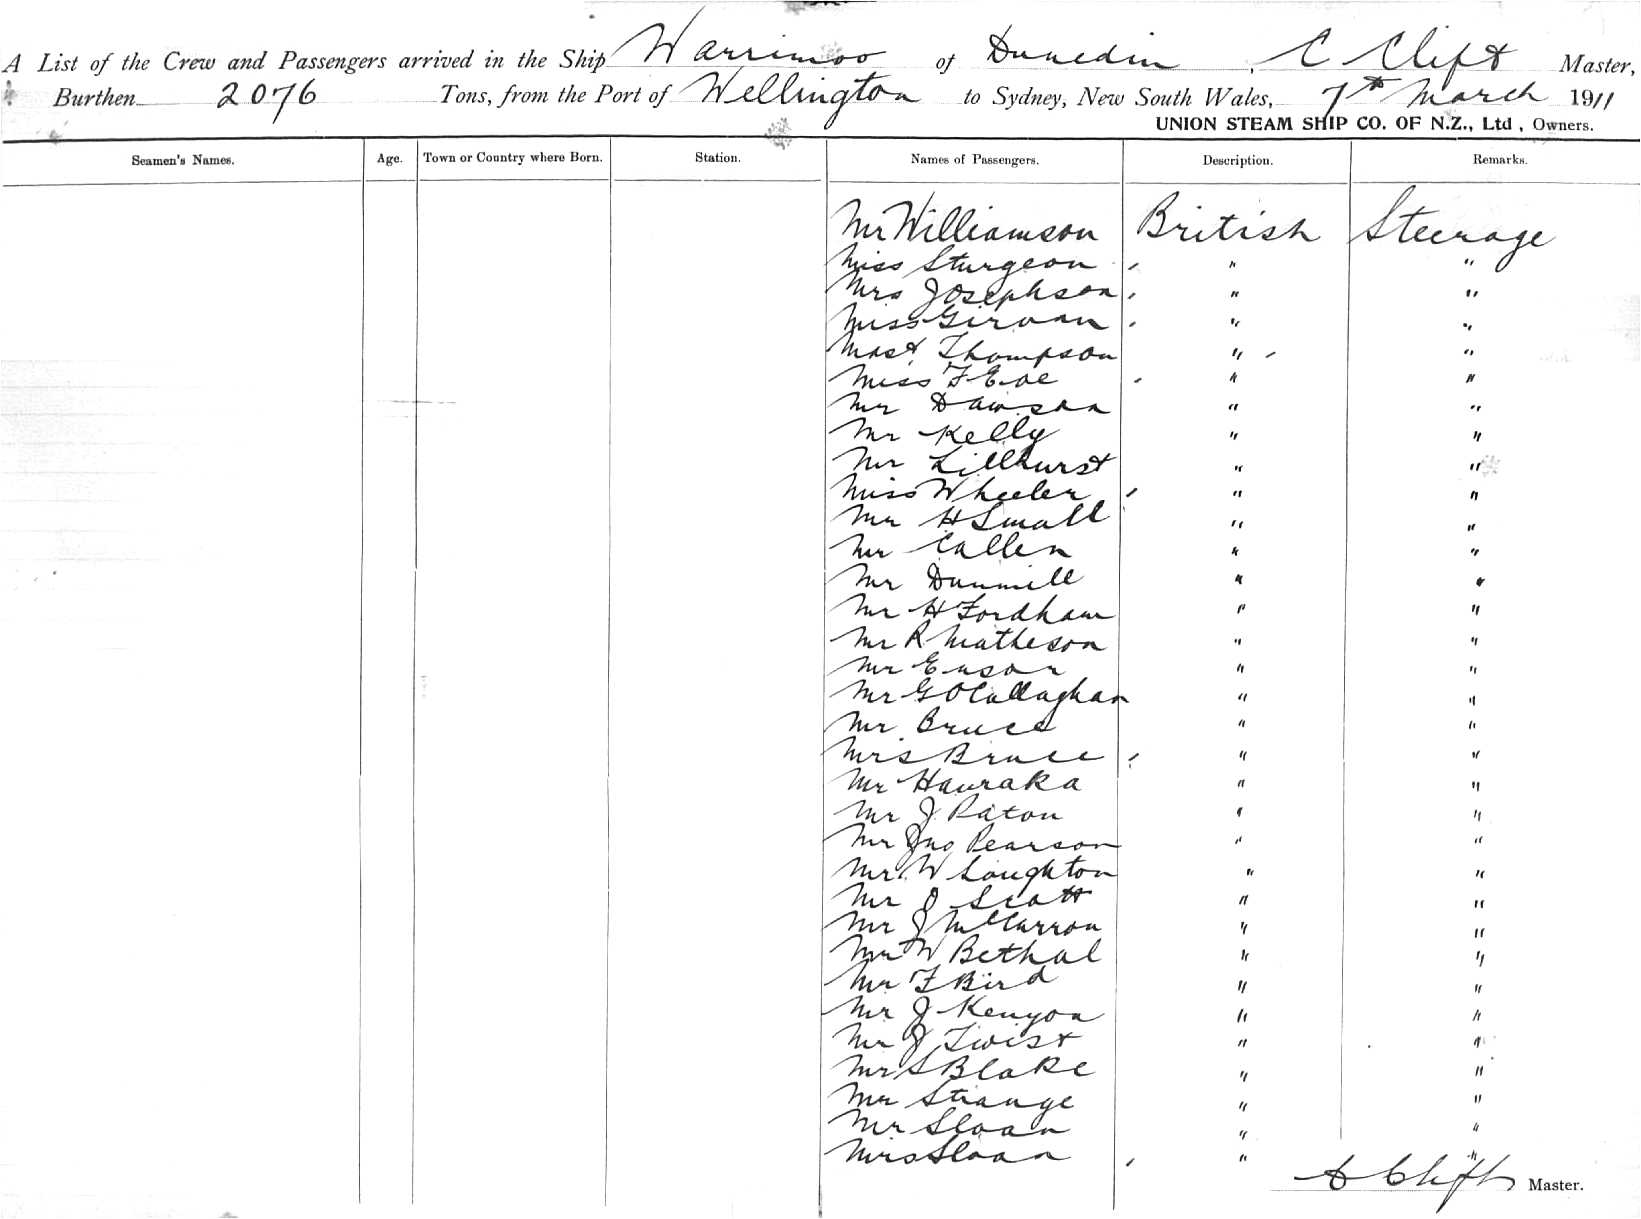 A List of the Crew and Passengers arrived in the Ship Warrimoo of Dunedin, C Clift Master,
Burthen 2076 Tons, from the Port of Wellington to Sydney, New South Wales, 7th March 1911
UNION STEAM SHIP CO. OF N.Z., Ltd, Owners.
Seamen's Names. Age. Town or Country where Born. Station. Names of Passengers. Description. Remarks.
Mr Williamson British Steerage
Miss Sturgeon " "
Mrs Josephson " "
Miss Girvan " "
Mast Thompson " "
Miss F " "
Mr Dawson " "
Mr Kelly " "
Mr Lillhurst " "
Miss Wheeler " "
Mr H Small " "
Mr Callen " "
Mr Dunmill " "
Mr H Fordham " "
Mr R Matheson " "
Mr Ensor " "
Mr G O'Callaghan " "
Mr Bruce " "
Mrs Bruce " "
Mr Hauraka " "
Mr J Paton " "
Mr Jno Pearson " "
Mr W Loughton " "
Mr J Scott " "
Mr J McCarron " "
Mr W Bethal " "
Mr F Bird " "
Mr J Kenyon " "
Mr J Twist " "
Mr S Blake " "
Mr Strange " "
Mr Sloan " "
Mrs Sloan " "
Clift Master.